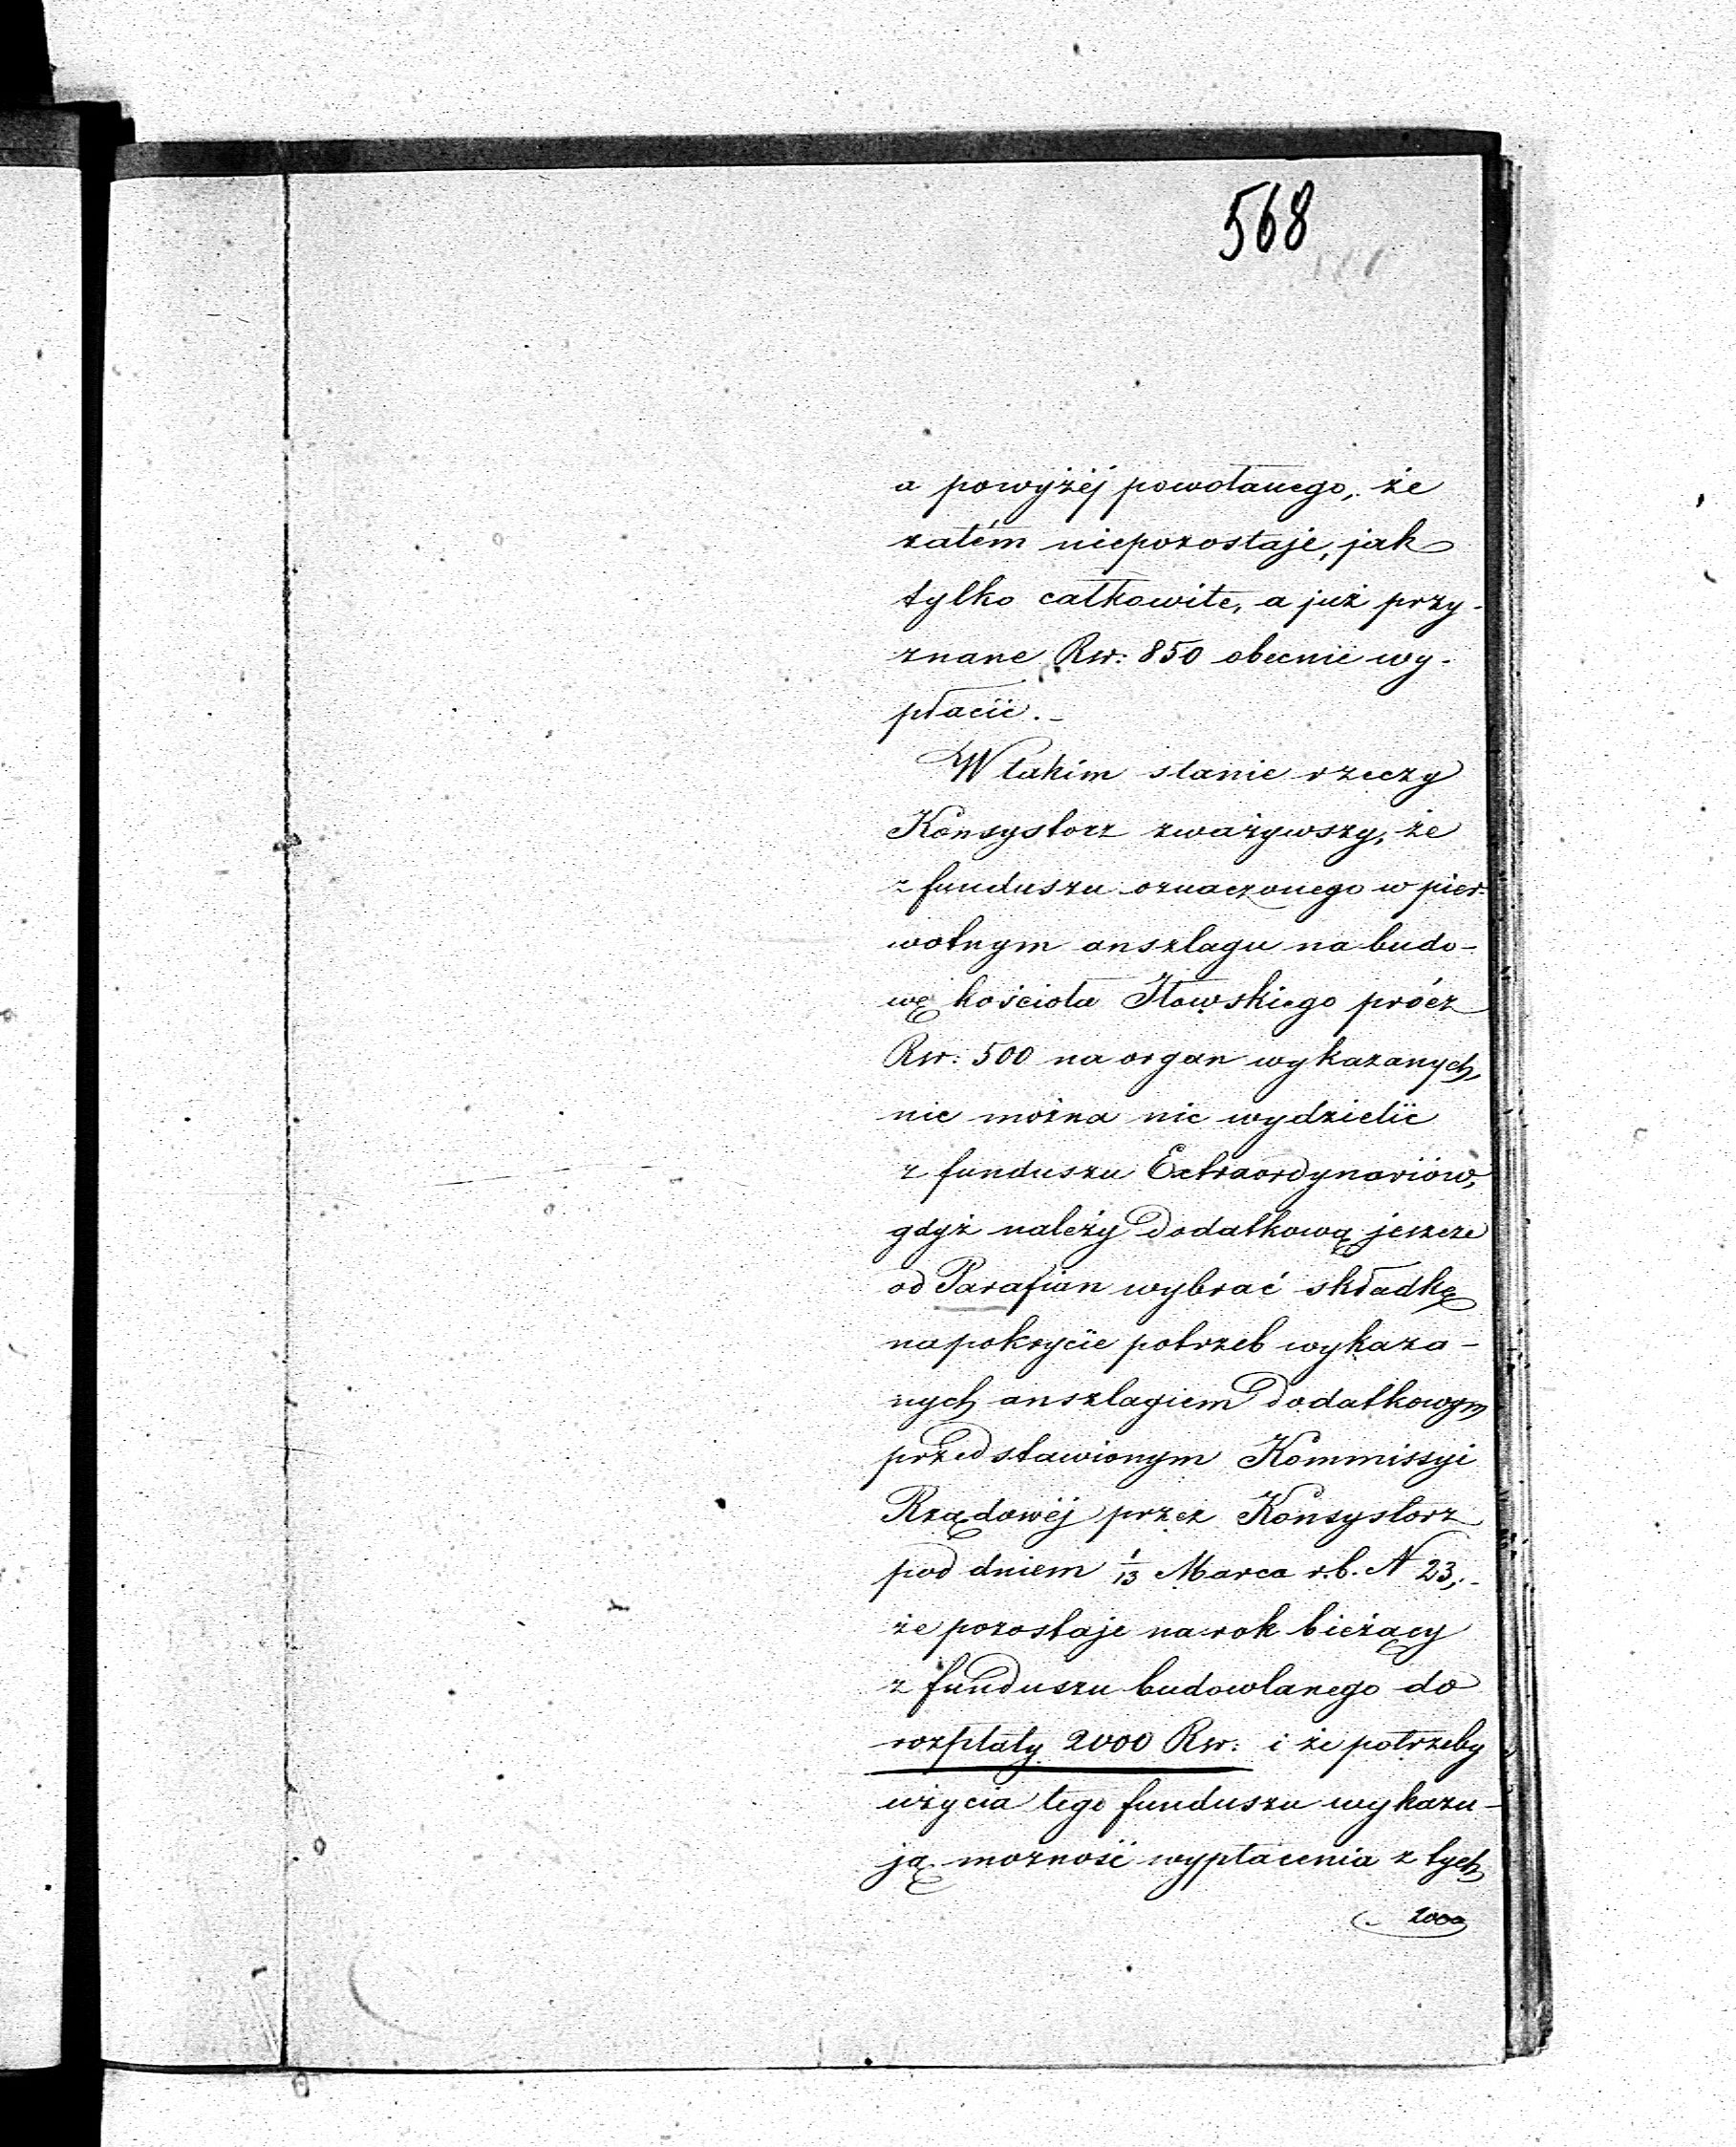 568
a powyżéj powołanego, że
zatém niepozostaje, jak
tylko całkowite, a już przy-
znane Rsr: 850 obecnie wy-
płacić.-
W takim stanie rzeczy
Konsystorz zważywszy, że
z funduszu oznaczonego w pier-
wotnym anszlagu na budo-
wę kościoła Iłowskiego prócz
Rsr: 500 na organ wykazanych,
nie można nic wydzielić
z funduszu Extraordynariów,
gdyż należy dodatkową jeszcze
od Parafian wybrać składkę
na pokrycie potrzeb wykaza-
nych anszlagiem dodatkowym
przedstawionym Kommissyi
Rządowéj przez Konsystorz
pod dniem 1/13 Marca r.b. N 23,-
że pozostaje na rok bieżący
z funduszu budowlanego do
rozpłaty 2000 Rsr: i że potrzeby
użycia tego funduszu wykazu-
ją możność wypłacenia z tych
2000